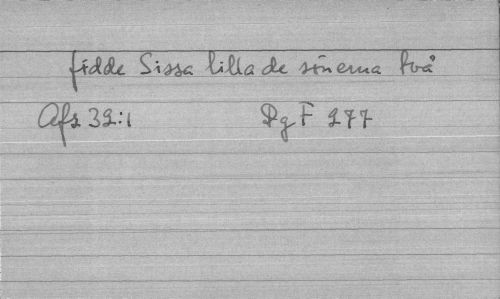 fidde Sissa lilla de sönerna två
Afz 32:1 Dg F 277